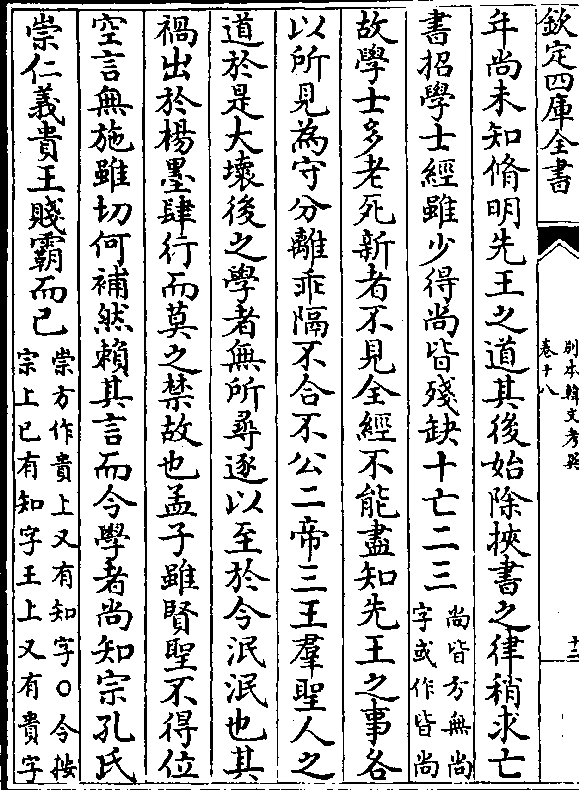 欽定四庫全書
別本韓文考異
卷十八
十三
年尚未知脩明先王之道其後始除挾書之律稍求亡
書招學士經雖少得尚皆殘缺十亡二三尚皆方無尚
字或作皆尚
故學士多老死新者不見全經不能盡知先王之事各
以所見為守分離乖隔不合不公二帝三王羣聖人之
道於是大壞後之學者無所尋逐以至於今泯泯也其
禍出於楊墨肆行而莫之禁故也孟子雖賢聖不得位
空言無施雖切何補然賴其言而今學者尚知宗孔氏
崇仁義貴王賤霸而已崇方作貴上又有知字○今按
宗上已有知字王上又有貴字